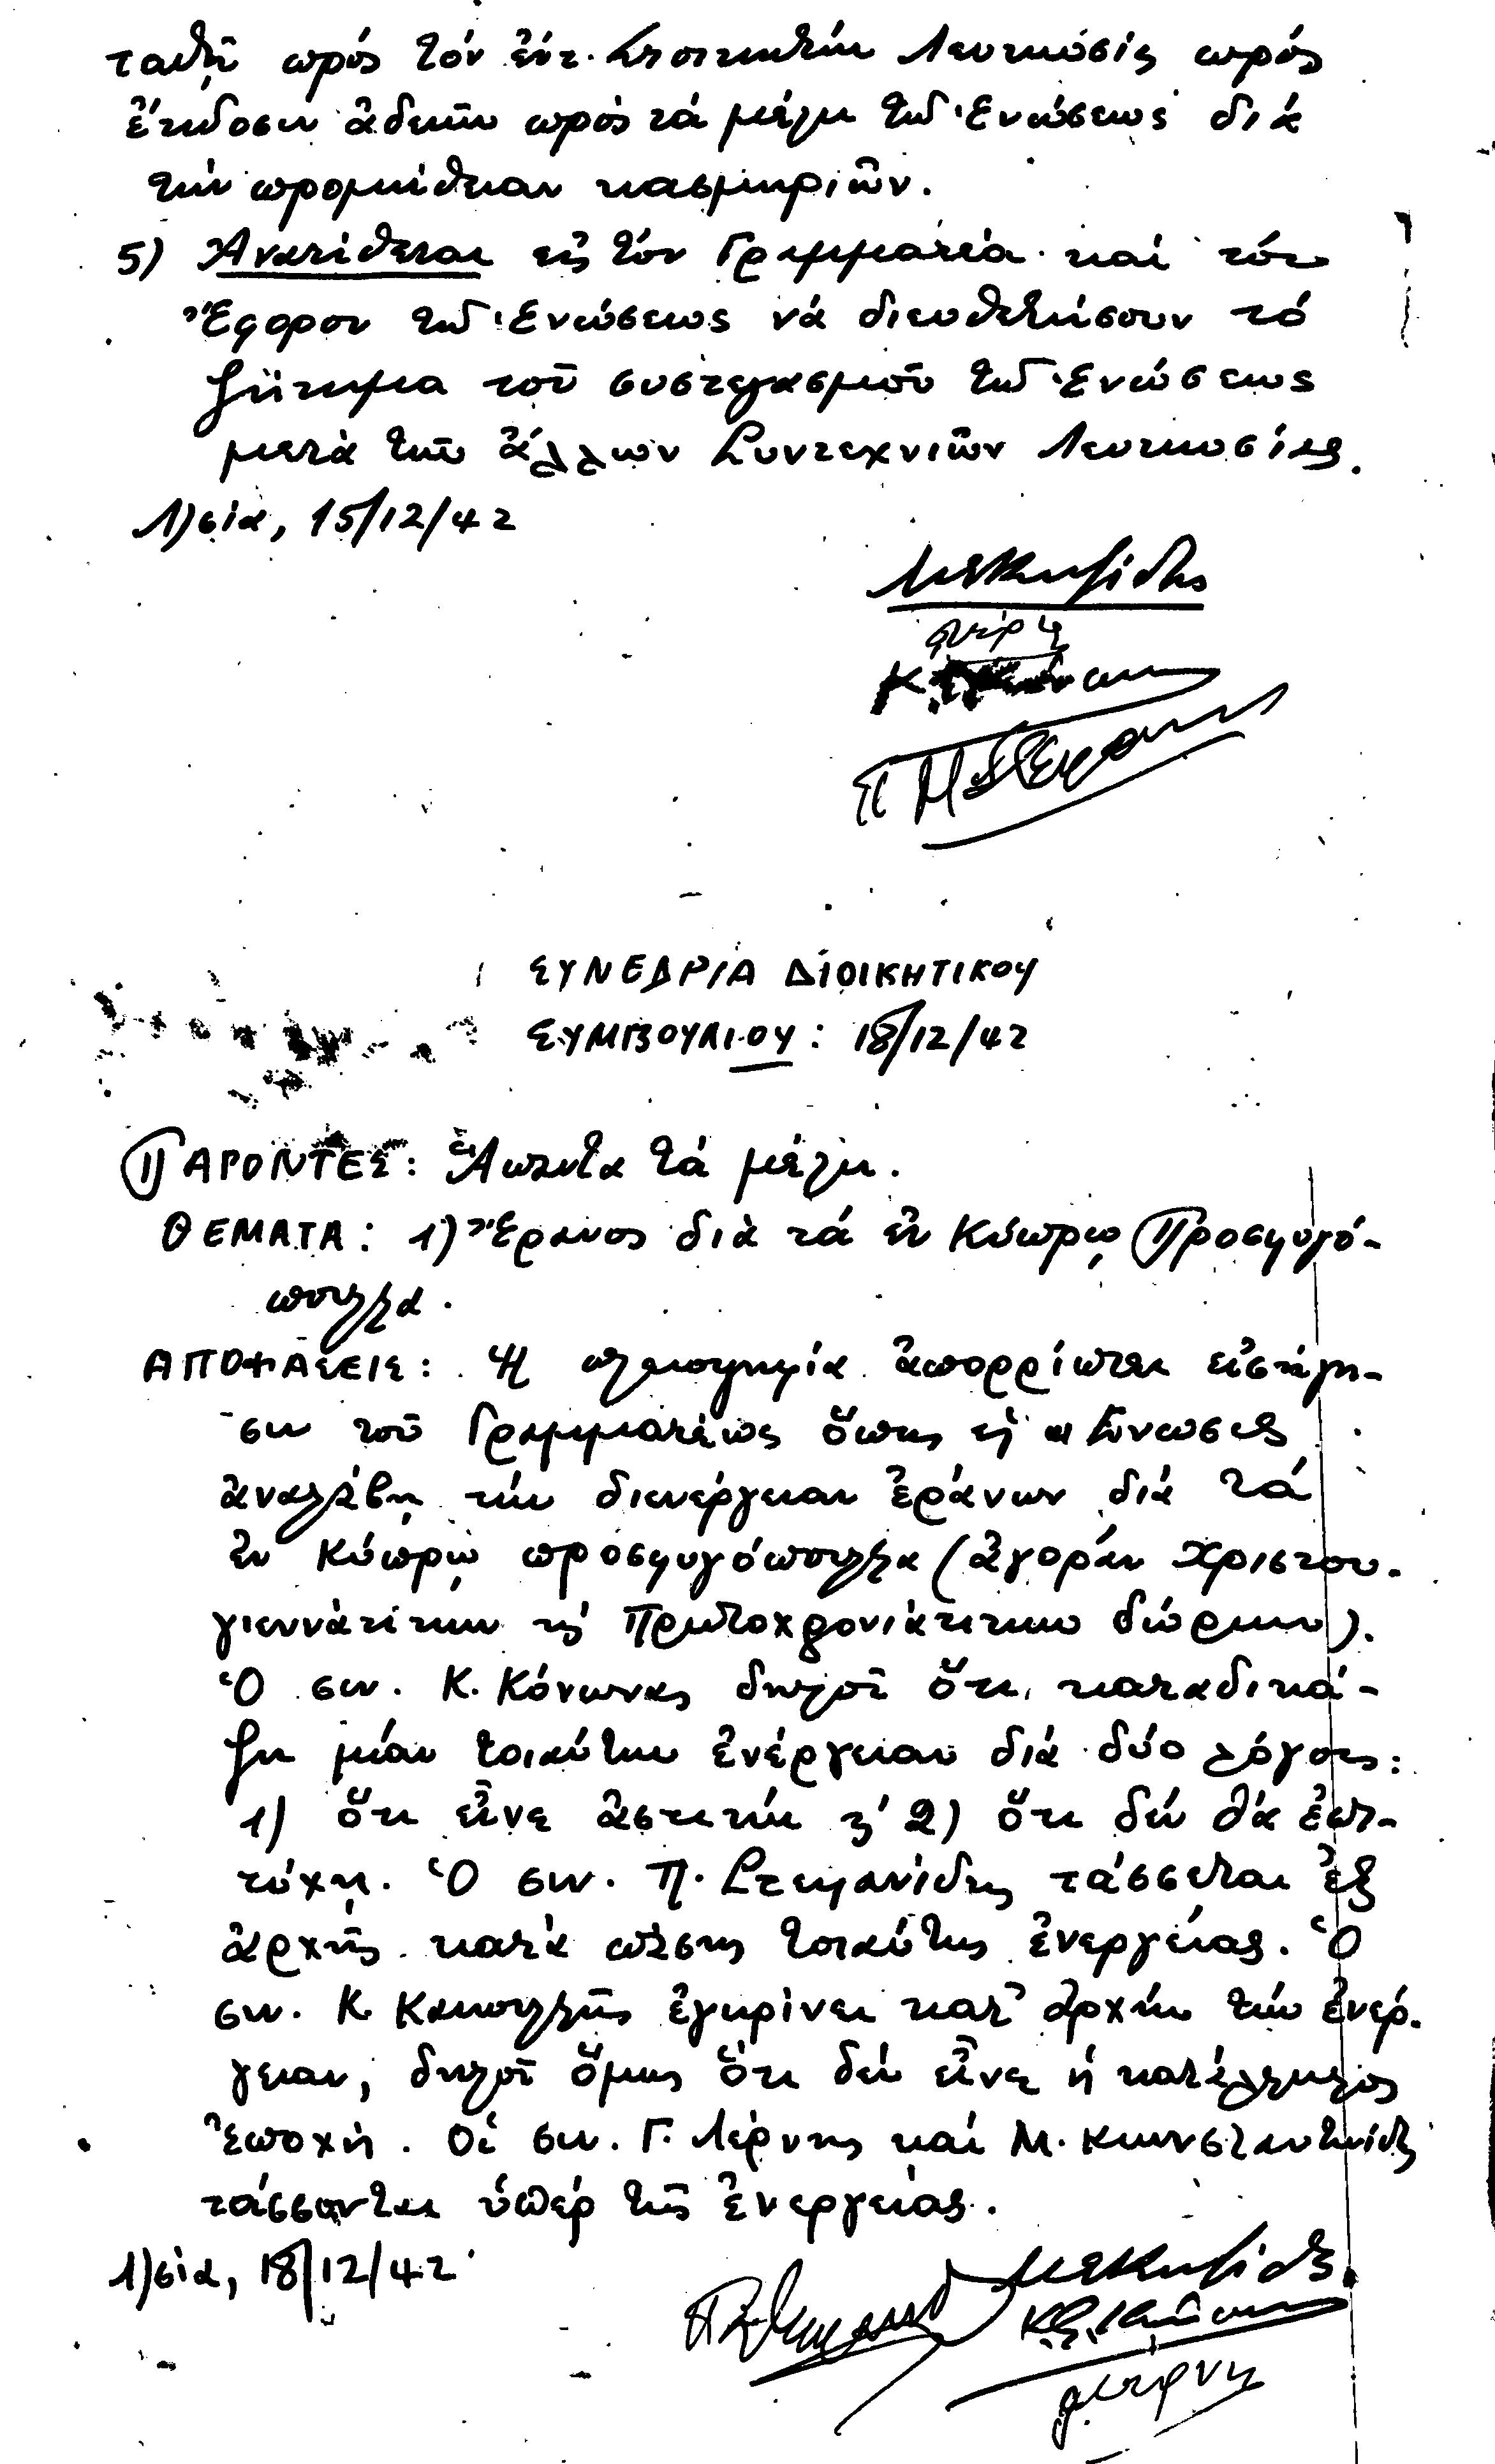 ταθῇ πρός τόν ἐντ. Διοικητήν Λευκωσίς πρός
ἔκδοσιν ἀδειῶν πρός τά μέλη τῆς Ἑνώσεως διά
τήν προμήθειαν κασμηριῶν.
5) Ἀνατίθεται εἰς τόν Γραμματέα καί τόν
Ἔφορον τῆς Ἑνώσεως νά διευθετήσουν τό
ζήτημα τοῦ συστεγασμοῦ τῆς Ἑνώσεως
μετά τῶν ἄλλων Συντεχνιῶν Λευκωσίας.
Λ)σία, 15/12/42
ΣΥΝΕΔΡΙΑ ΔΙΟΙΚΗΤΙΚΟΥ
ΣΥΜΒΟΥΛΙΟΥ: 18/12/42
ΠΑΡΟΝΤΕΣ: Ἅπαντα τά μέλη.
ΘΕΜΑΤΑ: 1) Ἔρανος διά τά ἐν Κύπρῳ Προσφυγό-
πουλλα.
ΑΠΟΦΑΣΕΙΣ: Ἡ πλειοψηφία ἀπορρίπτει εἰσήγη-
σιν τοῦ Γραμματέως ὅπως ἡ Ἕνωσις
ἀναλάβῃ τήν διενέργειαν ἐράνων διά τά
ἐν Κύπρῳ προσφυγόπουλλα (ἀγοράν Χριστου-
γεννάτικων ϗ Πρωτοχρονιάτικων δώρων).
Ὁ συν. Κ. Κόνωνας δηλοῖ ὅτι καταδικά-
ζει μίαν τοιαύτην ἐνέργειαν διά δύο λόγους:
1) ὅτι εἶνε ἀστική ϗ 2) ὅτι δέν θά ἐπι-
τύχῃ. Ὁ συν. Π. Στεφανίδης τάσσεται ἐξ
ἀρχῆς κατά πάσης τοιαύτης ἐνεργείας. Ὁ
συν. Κ. Κακουλλῆς ἐγκρίνει κατ' ἀρχήν τήν ἐνέρ-
γειαν, δηλοῖ ὅμως ὅτι δέν εἶνε ἡ κατάλληλος
ἐποχή. Οἱ συν. Γ. Λέρνης καί Μ. Κωνσταντινίδης
τάσσονται ὑπέρ τῆς ἐνεργείας.
Λ)σία, 18/12/42